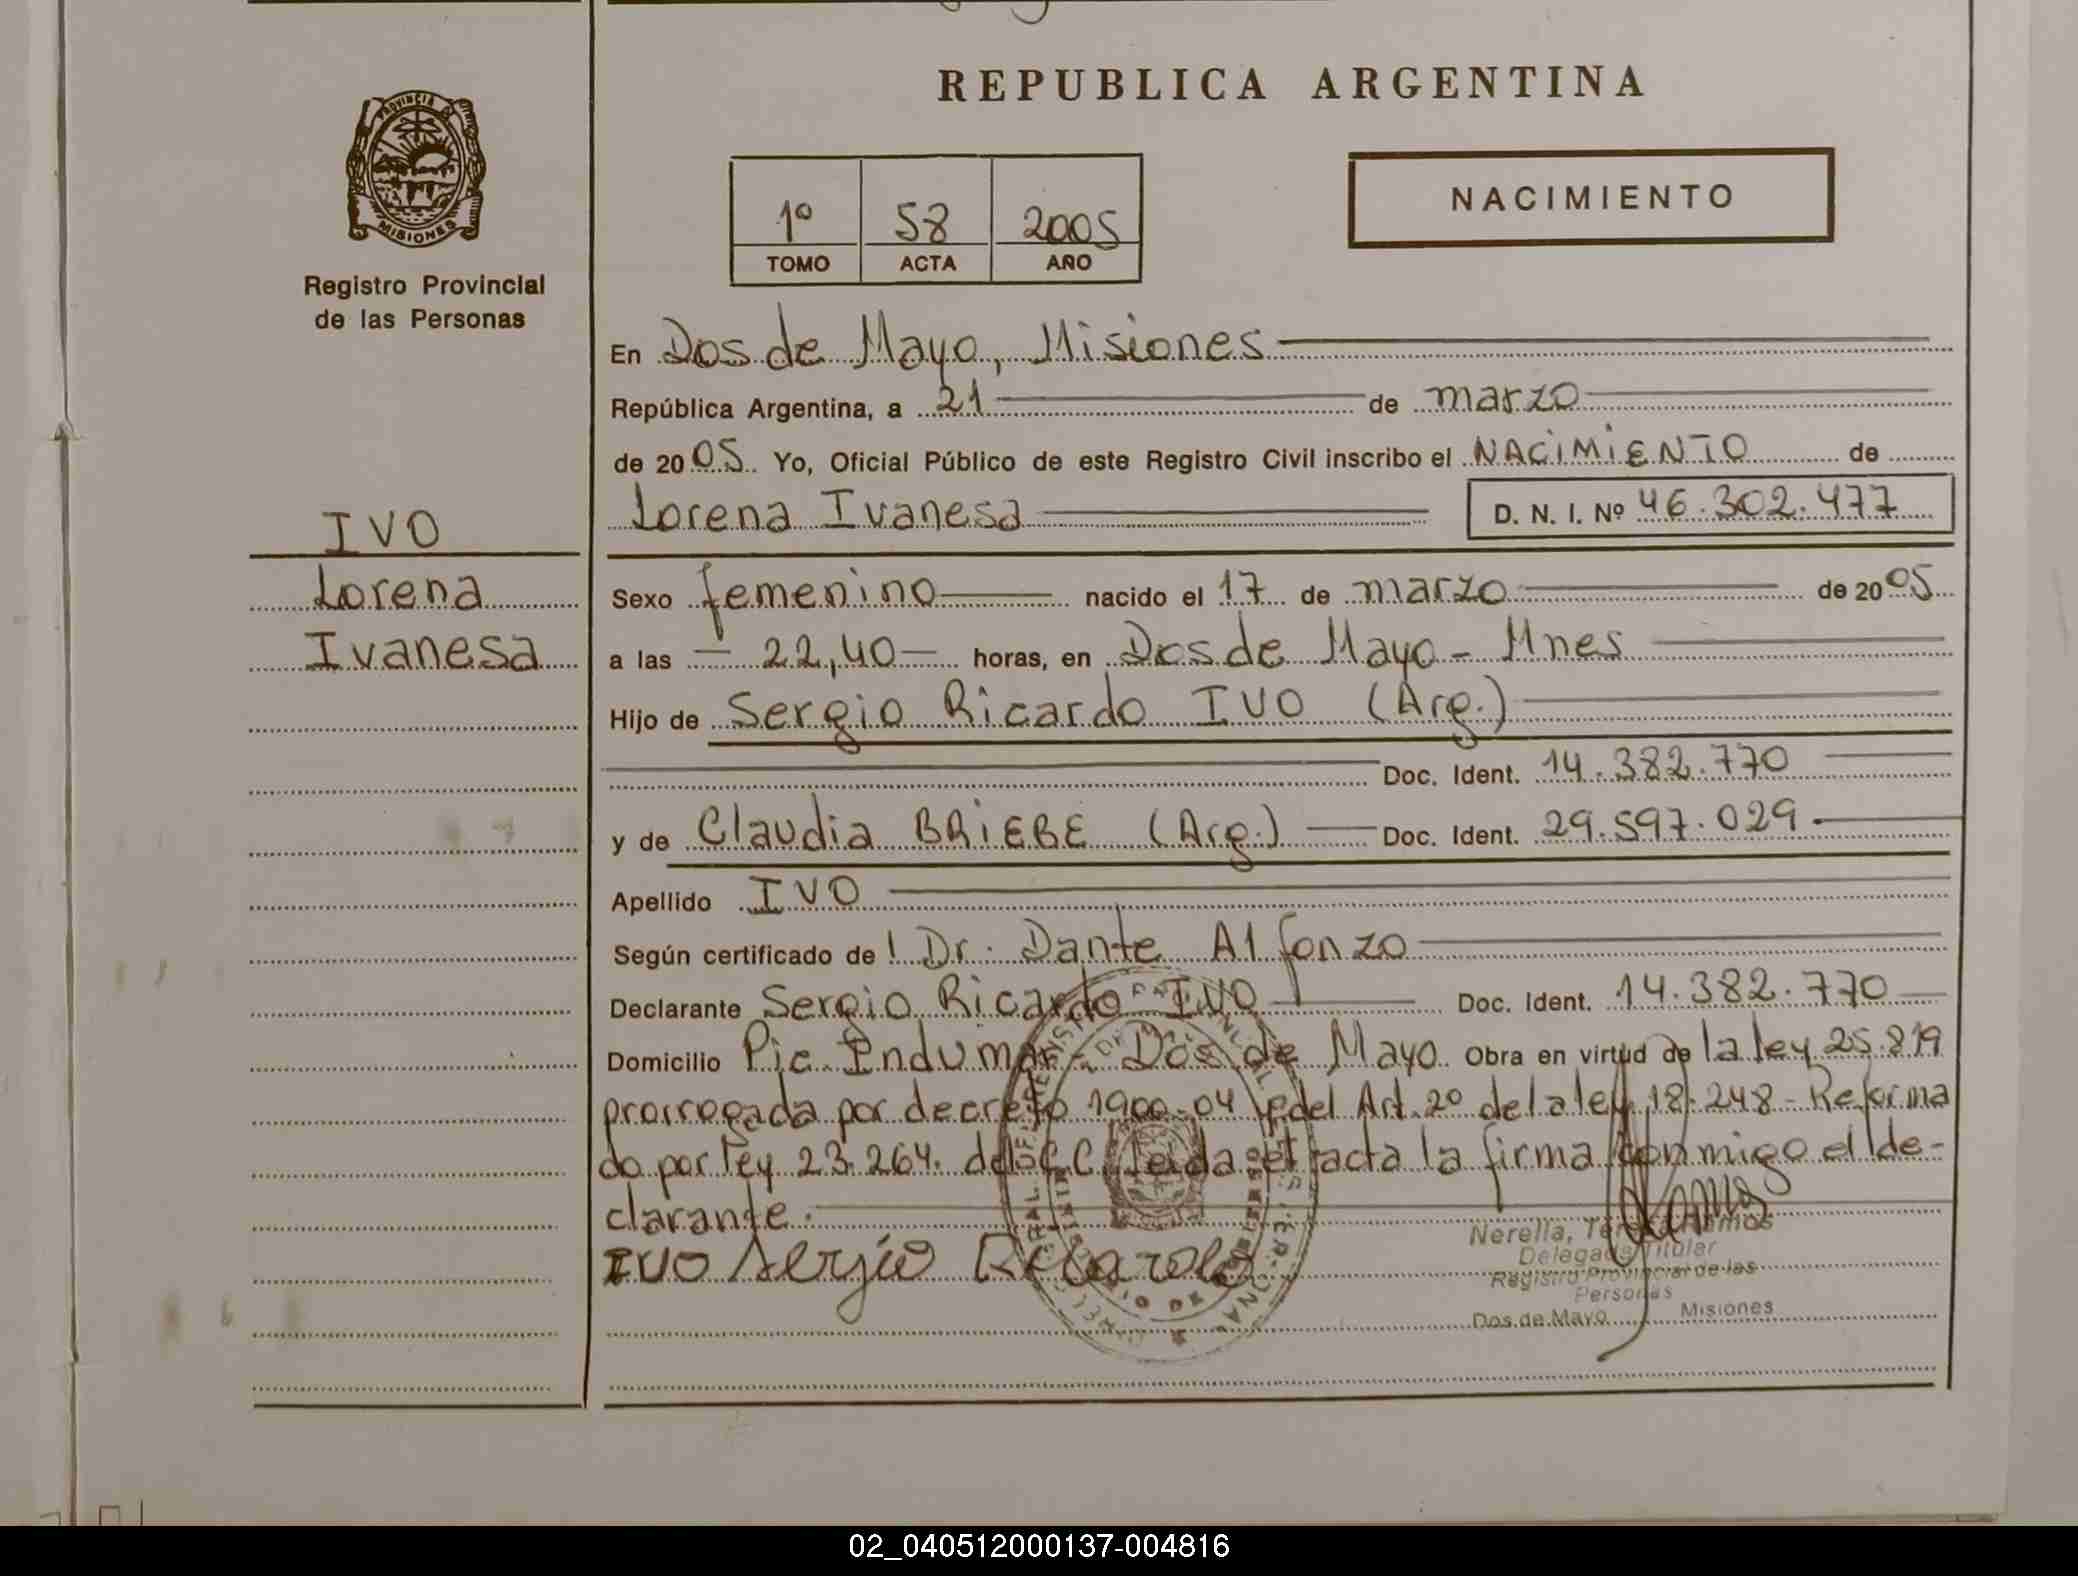 REPUBLICA ARGENTINA
PROVINCIA DE
MISIONES
Registro Provincial
de las Personas
1º 58 2005
TOMO ACTA AÑO
NACIMIENTO
En Dos de Mayo, Misiones
República Argentina, a 21 de marzo
de 2005. Yo, Oficial Público de este Registro Civil inscribo el NACIMIENTO de
Lorena Ivanesa D. N. I. Nº 46.302.477
IVO
Lorena
Ivanesa
Sexo femenino nacido el 17 de marzo de 2005
a las - 22,40 - horas, en Dos de Mayo - Mnes
Hijo de Sergio Ricardo IVO (Arg.)
Doc. Ident. 14.382.770
y de Claudia BRIEBE (Arg.) Doc. Ident. 29.597.029.
Apellido IVO
Según certificado de l Dr. Dante Alfonzo
Declarante Sergio Ricardo IVO Doc. Ident. 14.382.770
Domicilio Pic. Indumar - Dos de Mayo. Obra en virtud de la ley 25.819
prorrogada por decreto 1900-04 del Art. 2º de la ley 18.248 - Reforma
do por ley 23.264. del C.C. Leida el acta la firma conmigo el de-
clarante.
IVO Sergio Ricardo
Nerella, Teresa Ramos
Delegada Titular
Registro Provincial de las
Personas
Dos de Mayo Misiones
02_040512000137-004816